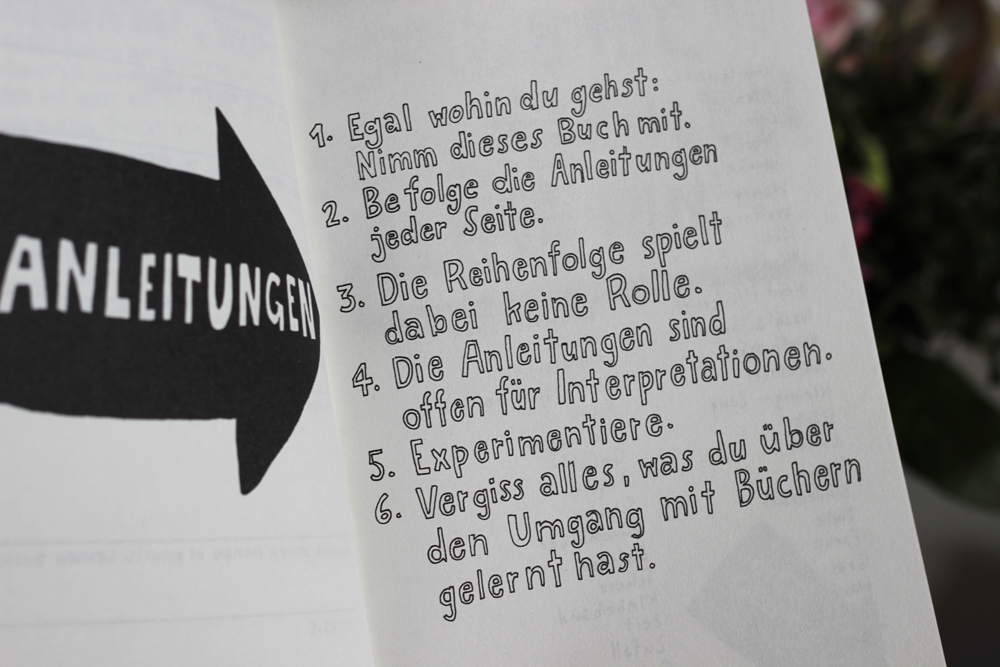 ANLEITUNGEN
1. Egal wohin du gehst:
Nimm dieses Buch mit.
2. Befolge die Anleitungen
jeder Seite.
3. Die Reihenfolge spielt
dabei keine Rolle.
4. Die Anleitungen sind
offen für Interpretationen.
5. Experimentiere.
6. Vergiss alles, was du über
den Umgang mit Büchern
gelernt hast.